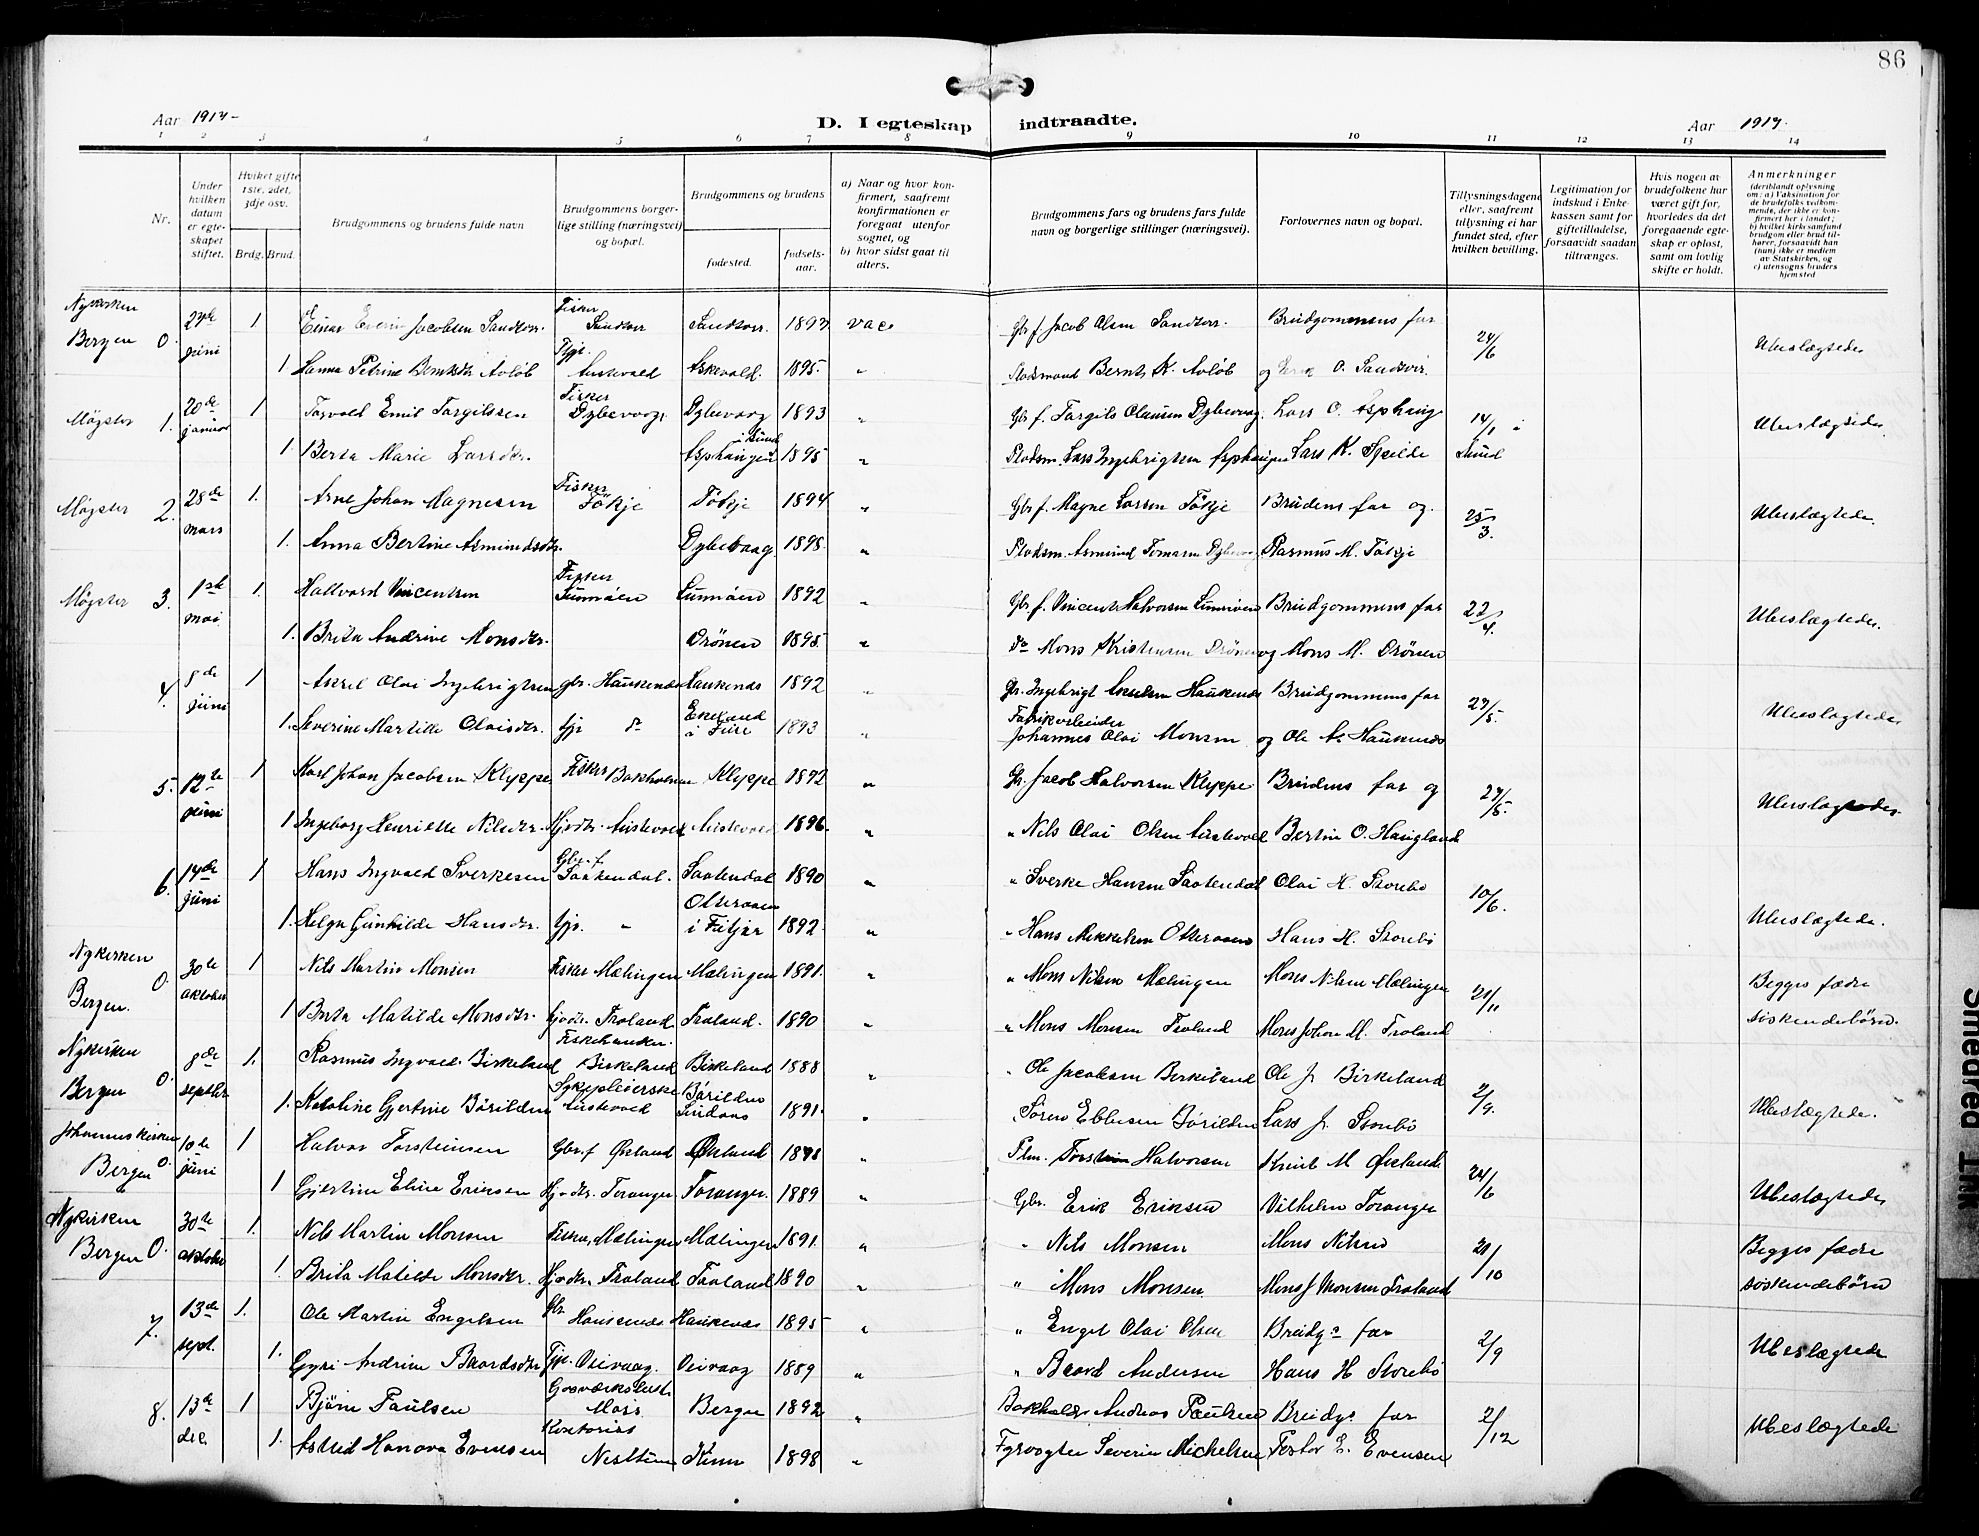 86
Aar 1917-
D. I egteskap indtraadte.
Aar 1917-
1 2 3 4 5 6 7 8 9 10 11 12 13 14
Nr.
Under hvilken datum er egteskapet stiftet.
Hviket gifte 1ste, 2det, 3dje osv.
Brdg. Brud.
Brudgommens og brudens fulde navn
Brudgommens borgerlige stilling (næringsvei) og bopæl.
Brudgommens og brudens
fødested.
fødselsaar.
a) Naar og hvor konfirmert, saafremt konfirmationen er foregaat utenfor sognet, og
b) hvor sidst gaat til alters.
Brudgommens fars og brudens fars fulde navn og borgerlige stillinger (næringsvei).
Forlovernes navn og bopæl.
Tillysningsdagene eller, saafremt tillysning ei har fundet sted, efter hvilken bevilling.
Legitimation for indskud i Enkekassen samt for giftetilladelse, forsaavidt saadan tiltrænges.
Hvis nogen av brudefolkene har været gift før, hvorledes da det foregaaende egteskap er opløst, samt om lovlig skifte er holdt.
Anmerkninger
(deriblandt oplysning om: a) Vaksination for de brudefolks vedkommende, der ikke er konfirmert her i landet; b) hvilket kirkesamfund brudgom eller brud tilhører, forsaavidt han (hun) ikke er medlem av Statskirken, og c) utensogns bruders hjemsted
Nykirken Bergen 0. 27de juni 1 Einar Everin Jacobsen Sandtorv. Fisker Sandtorv Sandtorv. 1893 vac. Gbr.f. Jacob Olsen Sandtorv. Brudgommens far 24/6 Ubeslægtede
1 Hanna Petrine Berntsdtr Avløb Tjp. Austevold Askevold. 1895. " Stadsmand Bernt K. Avløb og Erik O. Sandvir.
Møgster 1. 20de januar 1 Torvald Emil Torgilssen Fisker Dybevaag. Dybevaag 1893 " Gbr f. Torgils Olausen Dybevaag. Lars O. Asphaug 14/1 i Ubeslægtede.
1 Berta Marie Larsdtr. Asphaugen i Sund 1895 " Pladsm. Lars Ingebrigtsen Asphaugen Lars K. Speilde Sund
Møgster 2. 28de mars 1. Arne Johan Magnesen Fisker Tökje Tökje 1894 " Gbr f. Magne Larsen Tökje Brudens far og 25/3. Ubeslægtede.
1. Anna Bertine Asmundsdtr. Dybevaag 1895. " Pladsm. Asmund Tomasen Dybevaag Rasmus M. Tökje
Møgster 3. 1ste mai 1. Hallvard Vincentsen Fisker Lunnöen Lunnöen 1892 " Gbr. f. Vincent Halvorsen Lunnöen Brudgommens far 22/4. Ubeslægtede.
1. Brita Andrine Monsdtr. Drönen 1895. " Do Mons Kristensen Drönen og Mons M. Drönen
4. 8de juni 1 Askel Olai Ingebrigtsen gbr. Haukenæs Haukenæs 1892 " Gbr. Ingebrigt Haukenæs Brudgommens far 27/5. Ubeslægtede.
1. Severine Martille Olaisdtr. tjp do Ekeland i Fure 1893 " Fabrikarbeider Johannes Olai Monsen og Ole A. Haukenæs
5. 12te juni 1 Karl Johan Jacobsen Klyppe Fisker Bakholmen Klyppe 1892 " Gbr. Jacob Halvorsen Klyppe Brudens far og 27/5. Ubeslægtede.
1 Ingeborg Henriette Nilsdtr. Hjvdtr. Austevold Austevold 1896. " " Nils Olai Olsen Austevold Bertin O. Haugland
6. 14de juni 1 Hans Ingvald Sverkesen Gbr. f. Saatendal. Saatendal 1890 " " Sverke Hansen Saatendal Olai H. Storebö 10/6. Ubeslægtede.
1. Helga Gunhilde Hansdtr. tjp. " Otteraaen i Fitjar 1892. " " Hans Mikkelsen Otteraaen Hans H. Storebö
Nykirken Bergen. 0. 30te oktober 1 Nils Martin Monsen Fisker Mælingen Mælingen 1891. " " Mons Nilsen Mælingen Mons Nilsen Mælingen 21/11 Begges fædre
1 Brita Matilde Monsdtr. hjvdtr. Troland Troland. 1890 " " Mons Monsen Troland Mons Johan M. Troland søskendebørn.
Nykirken Bergen 0. 8de septber 1. Rasmus Ingvald Birkeland Fiskehandler. Birkeland Birkeland 1888 " " Ole Jacobsen Berkeland Ole J. Birkeland 2/9. Ubeslægtede.
1. Karoline Gjertine Börilden Sykepleierske Austevold Börilden Sundaas 1891. " Sören Ebbesen Börilden Lars J. Storebö
Johanneskirken Bergen 0. 10de juni 1 Halvor Torsteinsen Gbr. f Øisland Økland 1898 " Plm. Torstein Halvorsen Knut M Øisland 24/6 Ubeslægtede
1 Gjertine Eline Eriksen Hjvdtr. Toranger. Toranger. 1889 " Gbr. Erik Eriksen Vilhelm Toranger
Nykirken Bergen 0. 30te oktober 1. Nils Martin Monsen Fisker, Mælingen Mælingen 1891. " " Nils Monsen Mons Nilsen 21/10 Begges fædre
1. Brita Matilde Monsdtr. Hjvdtr. Troland Troland 1890 " " Mons Monsen Mons J Monsen Troland søskendebørn
7. 13de sept. 1. Ole Martin Engelsen Gbr Haukenæs Haukenæs 1895 " " Engel Olai Olsen Brudgs far 2/9 Ubeslægtede
1. Gyri Andrine Baardsdtr Tjp. Veivaag. Veivaag 1889 " " Baard Andersen Hans H Storebö
8. 13de dec. 1 Björn Paulsen Gasværksbest. Moss. Bergen 1892 " Bokholder Andreas Paulsen Brudgs far 2/12 Ubeslægtede
1. Astrid Hanova Evensen Kontorist Nesttun Kinn 1898 " Fyrvogter Severin Michelsen Pastor E. Evensen